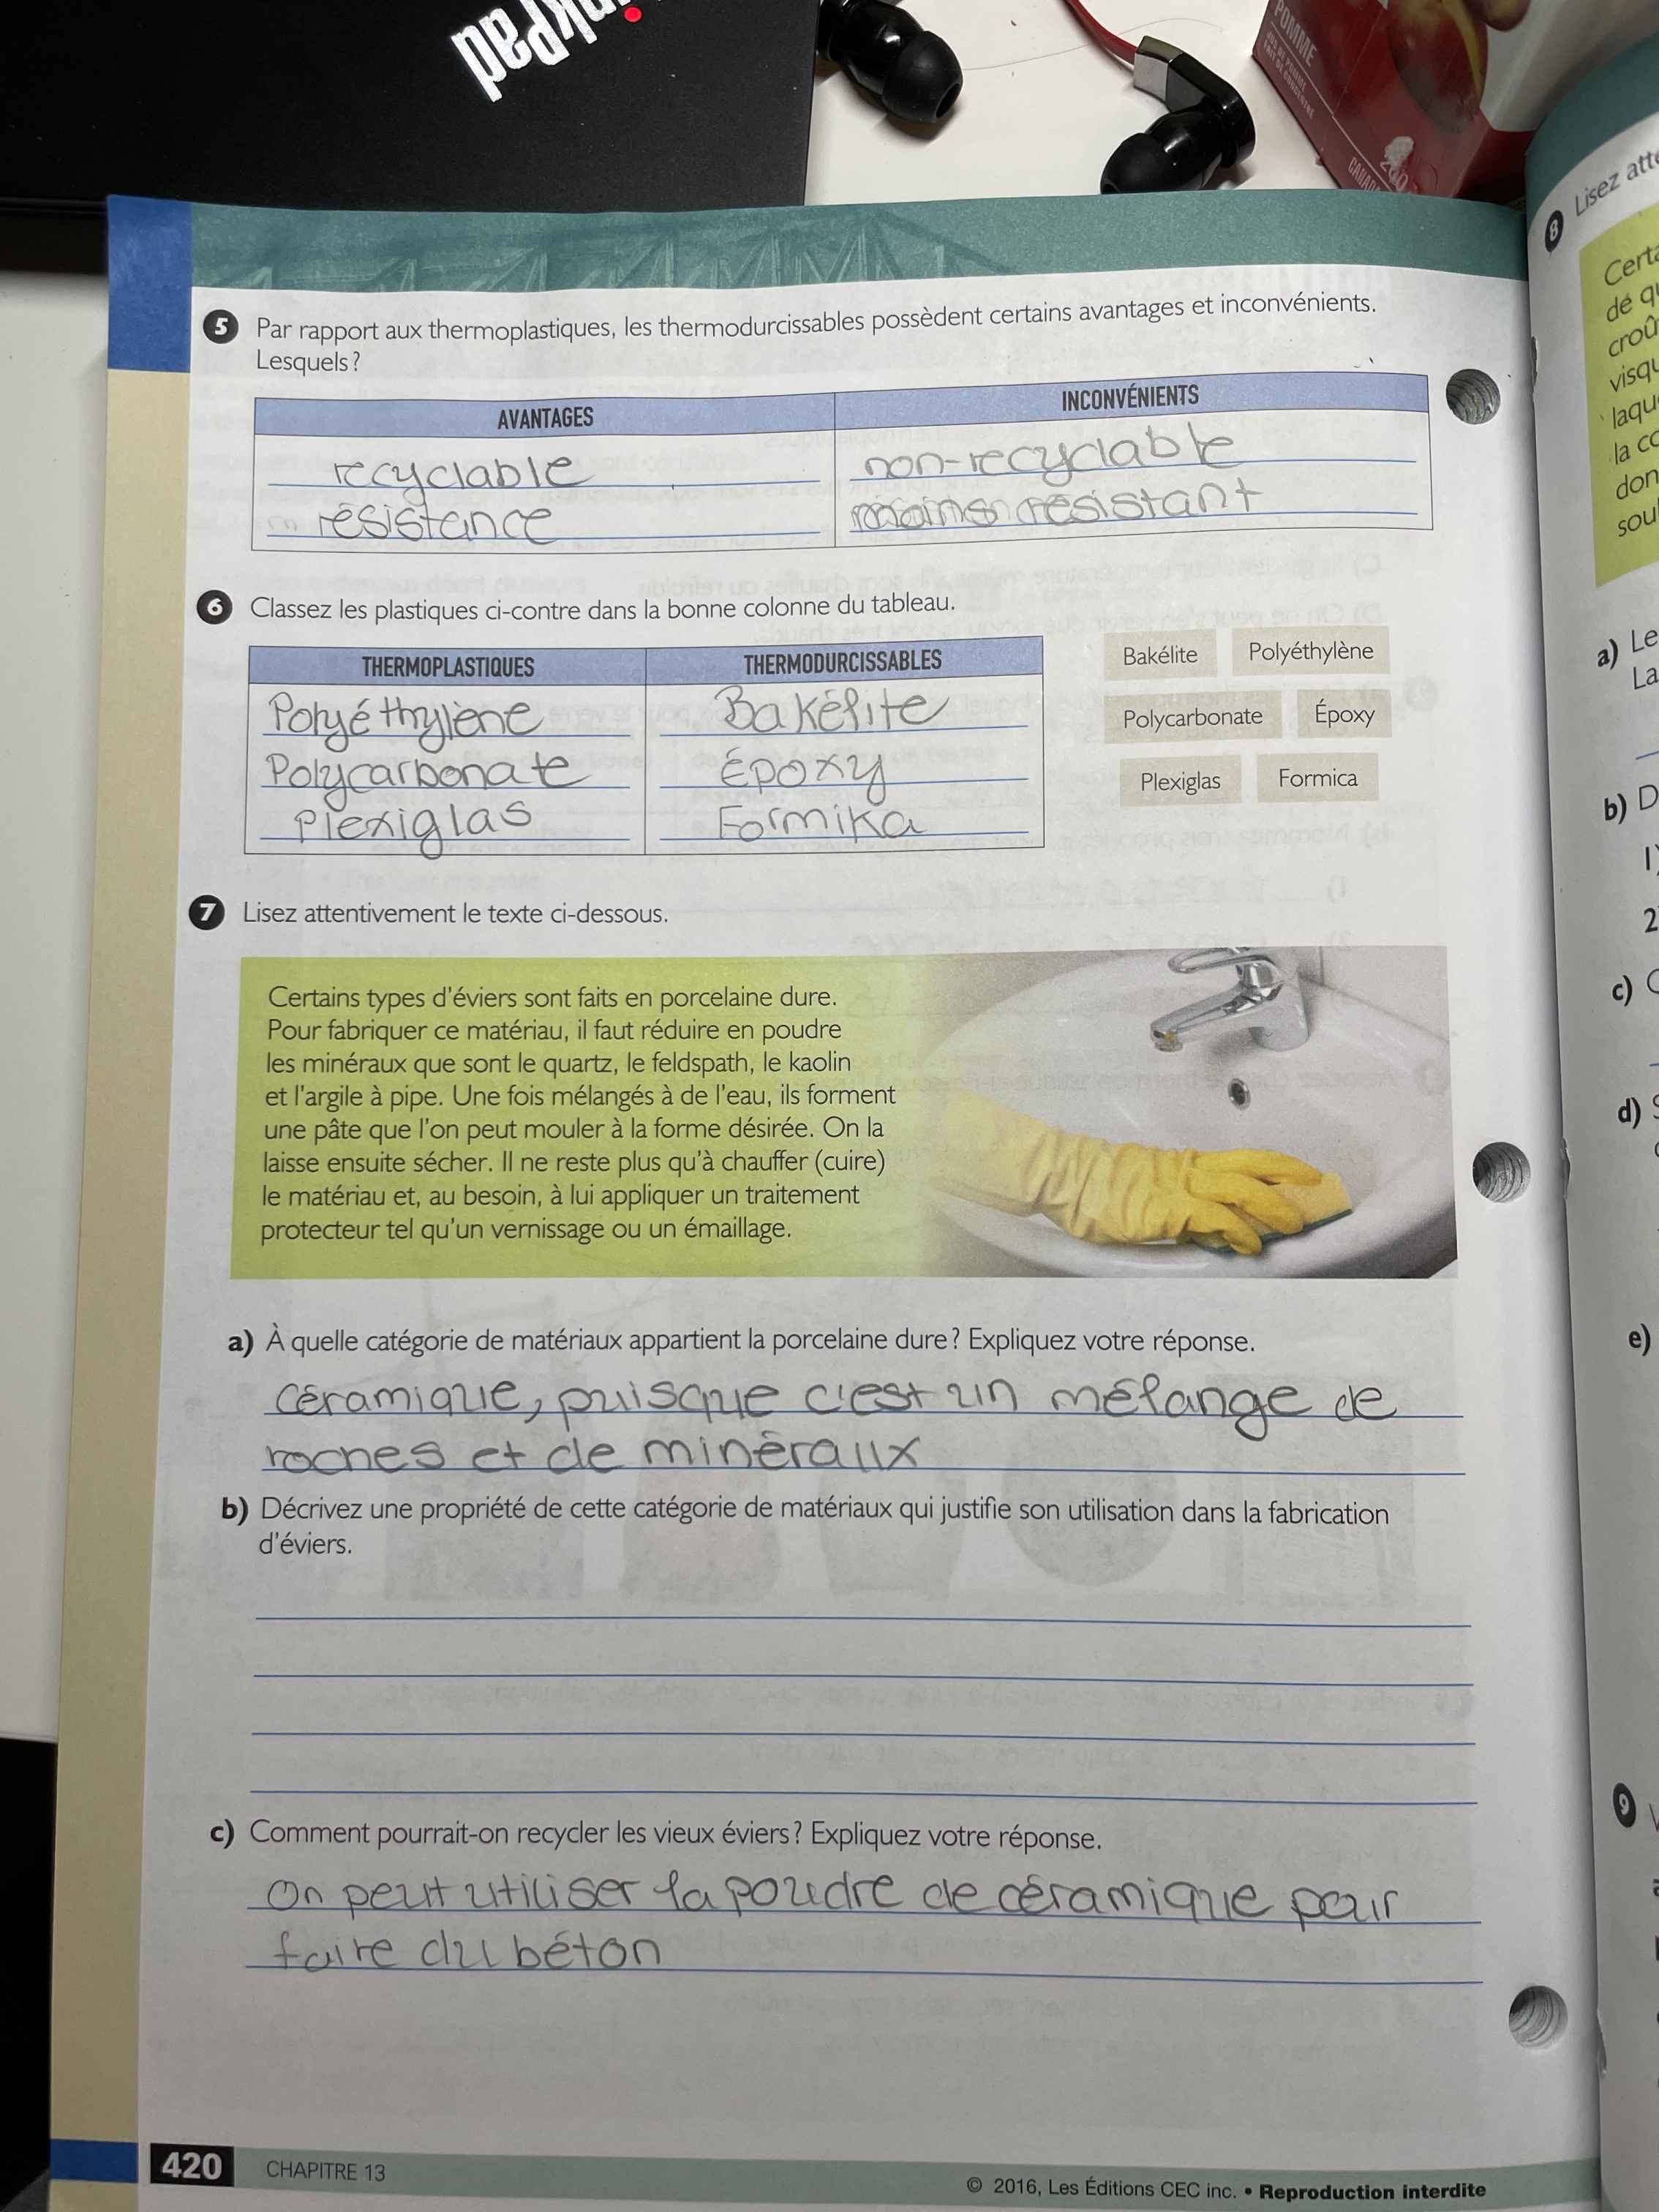 ThinkPad
POMME
CANADA
200
5 Par rapport aux thermoplastiques, les thermodurcissables possèdent certains avantages et inconvénients.
Lesquels ?
AVANTAGES INCONVÉNIENTS
recyclable non-recyclable
résistance moins résistant
6 Classez les plastiques ci-contre dans la bonne colonne du tableau.
THERMOPLASTIQUES THERMODURCISSABLES
Polyéthylène Bakélite
Polycarbonate Époxy
Plexiglas Formika
Bakélite Polyéthylène
Polycarbonate Époxy
Plexiglas Formica
7 Lisez attentivement le texte ci-dessous.
Certains types d'éviers sont faits en porcelaine dure.
Pour fabriquer ce matériau, il faut réduire en poudre
les minéraux que sont le quartz, le feldspath, le kaolin
et l'argile à pipe. Une fois mélangés à de l'eau, ils forment
une pâte que l'on peut mouler à la forme désirée. On la
laisse ensuite sécher. Il ne reste plus qu'à chauffer (cuire)
le matériau et, au besoin, à lui appliquer un traitement
protecteur tel qu'un vernissage ou un émaillage.
a) À quelle catégorie de matériaux appartient la porcelaine dure ? Expliquez votre réponse.
céramique, puisque c'est un mélange de
roches et de minéraux
b) Décrivez une propriété de cette catégorie de matériaux qui justifie son utilisation dans la fabrication
d'éviers.
c) Comment pourrait-on recycler les vieux éviers ? Expliquez votre réponse.
On peut utiliser la poudre de céramique pour
faire du béton
420 CHAPITRE 13
© 2016, Les Éditions CEC inc. • Reproduction interdite
8 Lisez
a) Le
La
b)
1)
2
c)
d)
e)
9